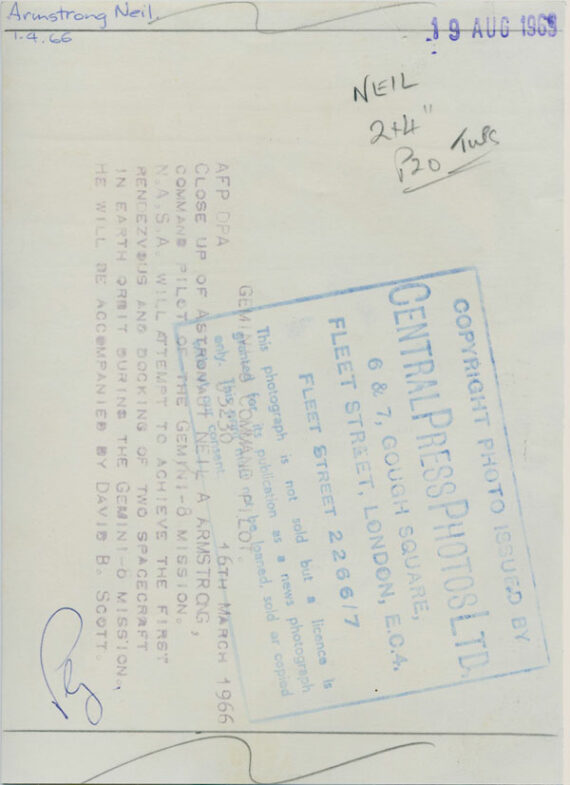 Armstrong Neil.
1.4.66
19 AUG 1969
NEIL
2+4"
P20
AFP DPA 05230 16TH MARCH 1966
GEMINI COMMAND PILOT.
CLOSE UP OF ASTRONAUT NEIL A ARMSTRONG,
COMMAND PILOT OF THE GEMINI-8 MISSION.
N.A.S.A. WILL ATTEMPT TO ACHIEVE THE FIRST
RENDEZVOUS AND DOCKING OF TWO SPACECRAFT
IN EARTH ORBIT DURING THE GEMINI-8 MISSION.
HE WILL BE ACCOMPANIED BY DAVID B. SCOTT.
COPYRIGHT PHOTO ISSUED BY
CENTRAL PRESS PHOTOS LTD.
6 & 7, GOUGH SQUARE,
FLEET STREET, LONDON, E.C.4.
FLEET STREET 2266/7
This photograph is not sold but a licence is
granted for its publication as a news photograph
only. This be loaned sold or copied
consent